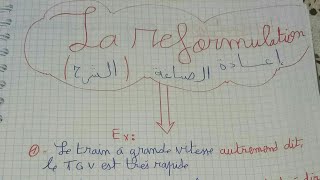 La reformulation
إعادة الصياغة (الشرح)
Ex:
①- Le train à grande vitesse autrement dit,
le TGV est très rapide